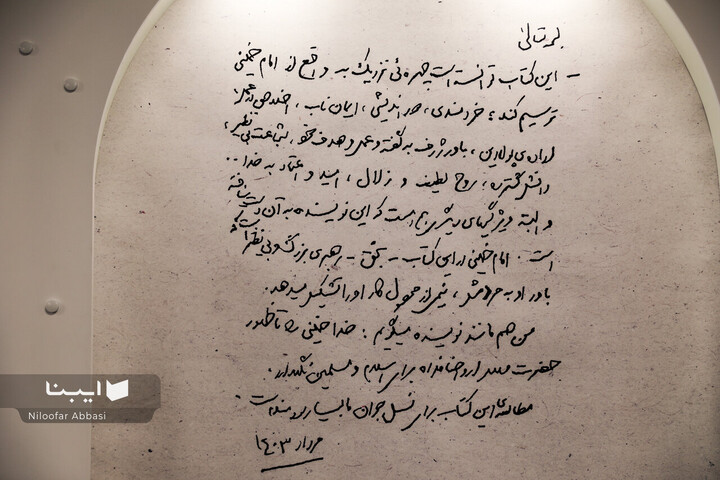 بسمه‌تعالی
- این کتاب توانسته است چهره‌ئی نزدیک به واقع از امام خمینی
ترسیم کند؛ خردمندی، دوراندیشی، ایمان ناب، اخلاص در عمل،
اراده‌ی پولادین، باور ژرف به گفته و عمل و هدف خود، شجاعت بی‌نظیر،
دانش گسترده، روح لطیف و زلال، امید و اعتماد به خدا ..
و البته ویژگیهای دیگری هم هست که این نویسنده به آن دست نیافته
است. امام خمینی در این کتاب - بحق - رهبری بزرگ و بی‌نظیر است که
باور او به مردمش، نیمی از محصول کار او را تشکیل میدهد.
من هم مانند نویسنده میگویم: خدا خمینی را تا ظهور
حضرت مهدی ارواحنا فداه برای اسلام و مسلمین نگهدارد.
مطالعه‌ی این کتاب برای نسل جوان ما بسیار سودمند است.
مرداد ۱۴۰۳
ایبنا
Niloofar Abbasi